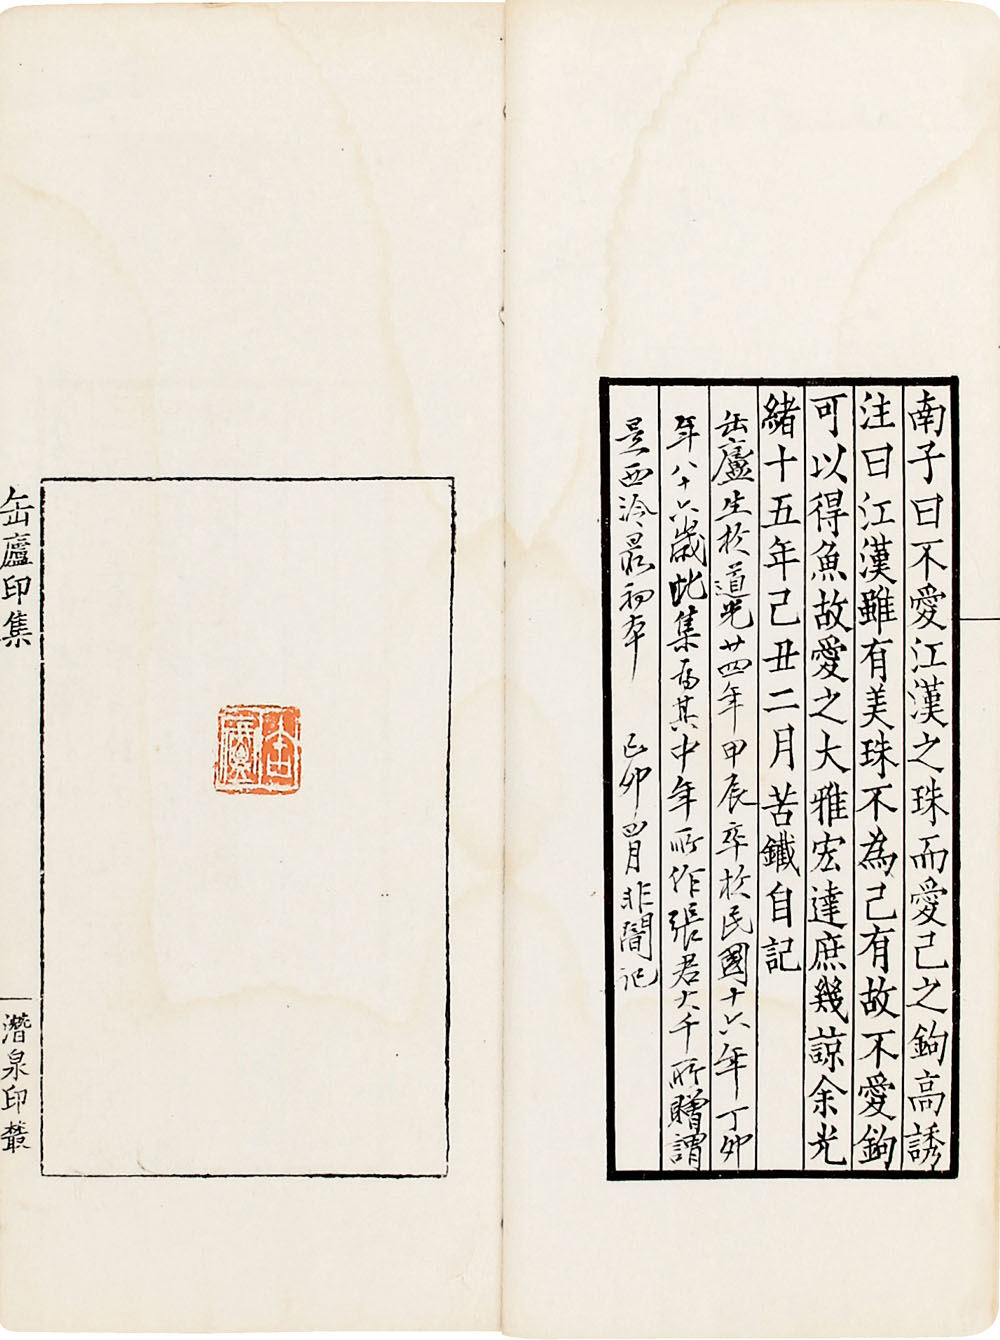 南子曰不愛江漢之珠而愛己之鉤高誘
注曰江漢雖有美珠不為己有故不愛鉤
可以得魚故愛之大雅宏達庶幾諒余光
緒十五年己丑二月苦鐵自記
缶廬生於道光廿四年甲辰卒於民國十六年丁卯
年八十六歲此集為其中年所作張君大千所贈謂
是西泠最初本 己卯四月非闇記
缶廬
缶廬印集
潛泉印叢